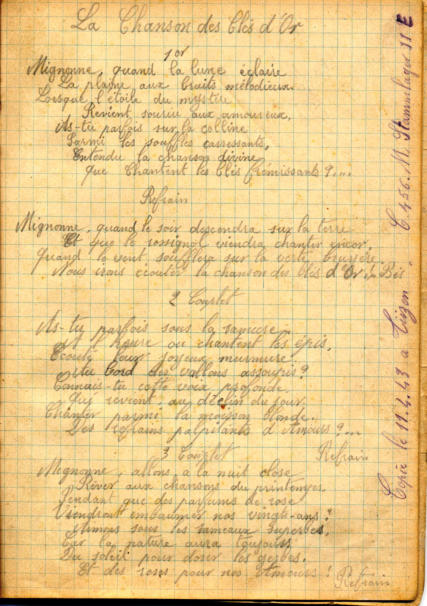 La Chanson des Clés d'Or
1er
Mignonne, quand la lune éclaire
La plaine aux bruits mélodieux
Lorsque l'étoile du mystère
Revient sourire aux amoureux,
As-tu parfois sur la colline
Parmi les souffles caressants,
Entendu la chanson divine
Que Chantent les blés frémissants ?...
Refrain
Mignonne, quand le soir descendra sur la terre
Et que le rossignol viendra chanter encor,
Quand le vent soufflera sur la verte bruyère
Nous irons écouter la chanson des blés d'Or
2 Couplet
As-tu parfois sous la ramure
A l'heure ou chantent les épis,
Ecouté leur joyeux murmure
Au bord des vallons assoupis ?
Connais-tu cette voix profonde
Qui revient, au déclin du jour
Chanter parmi la moisson blonde.
Des refrains palpitants d'Amours ?...
Refrain
3 Couplet
Mignonne, allons, à la nuit close
Rêver aux chansons du printemps
Pendant que des parfums de rose
Viendront embaumer nos vingt-ans !
Aimons sous les rameaux superbes,
Car la nature aura toujours
Du soleil pour dorer les gerbes.
Et des roses pour nos Amours !
Refrain
Copié le 11.4.43 a C. 456. M. Stammlager II E